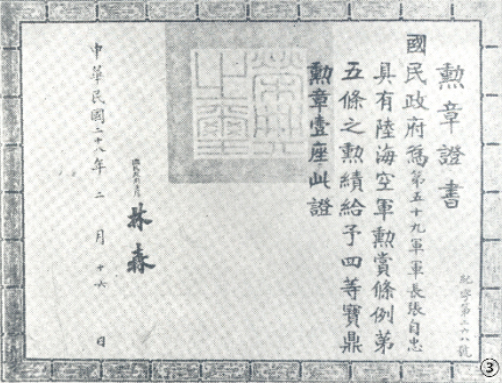 勲章證書
國民政府為第五十九軍軍長張自忠
具有陸海空軍勲賞條例第
五條之勲績給予四等寶鼎
勲章壹座此證
國民政府主席
林森
中華民國二十八年二月十六日
榮典之璽
③